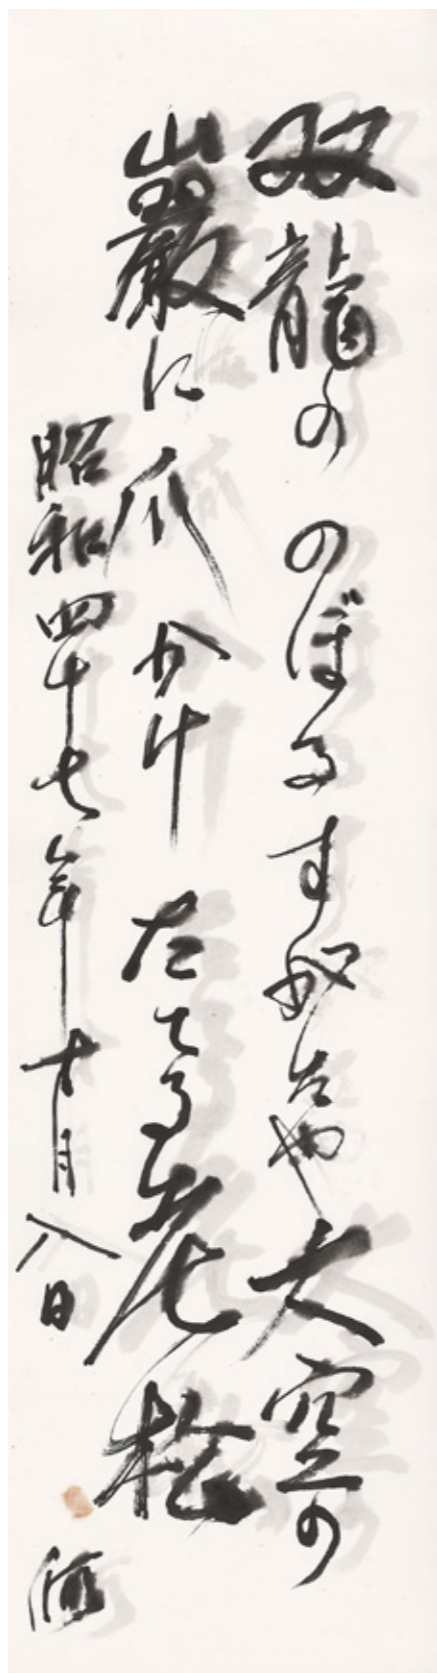 双龍の のぼるすがたや 大空の
巌に 爪かけ たてる老松
昭和四十七年 十月 八日